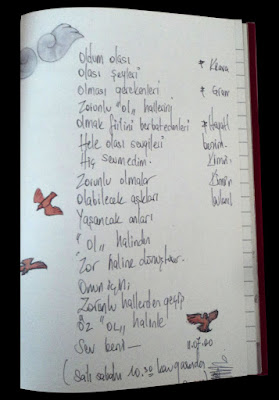 Oldum olası
olası şeyleri
olması gerekenleri
Zorunlu "ol" hallerini
olmak fiilini berbat edimleri
Hele olası sevgileri
Hiç sevmedim.
Zorunlu olmalar
Olabilecek aşkları
Yaşancak anları
"ol" halinden
Zor haline dönüştürür.
Onun için
Zorunlu hallerden geçip
Öz "ol" halinle
Sev beni-
11.07.00
(salı sabahı 10.30
*
*
* Hayat
benim.
Kimin